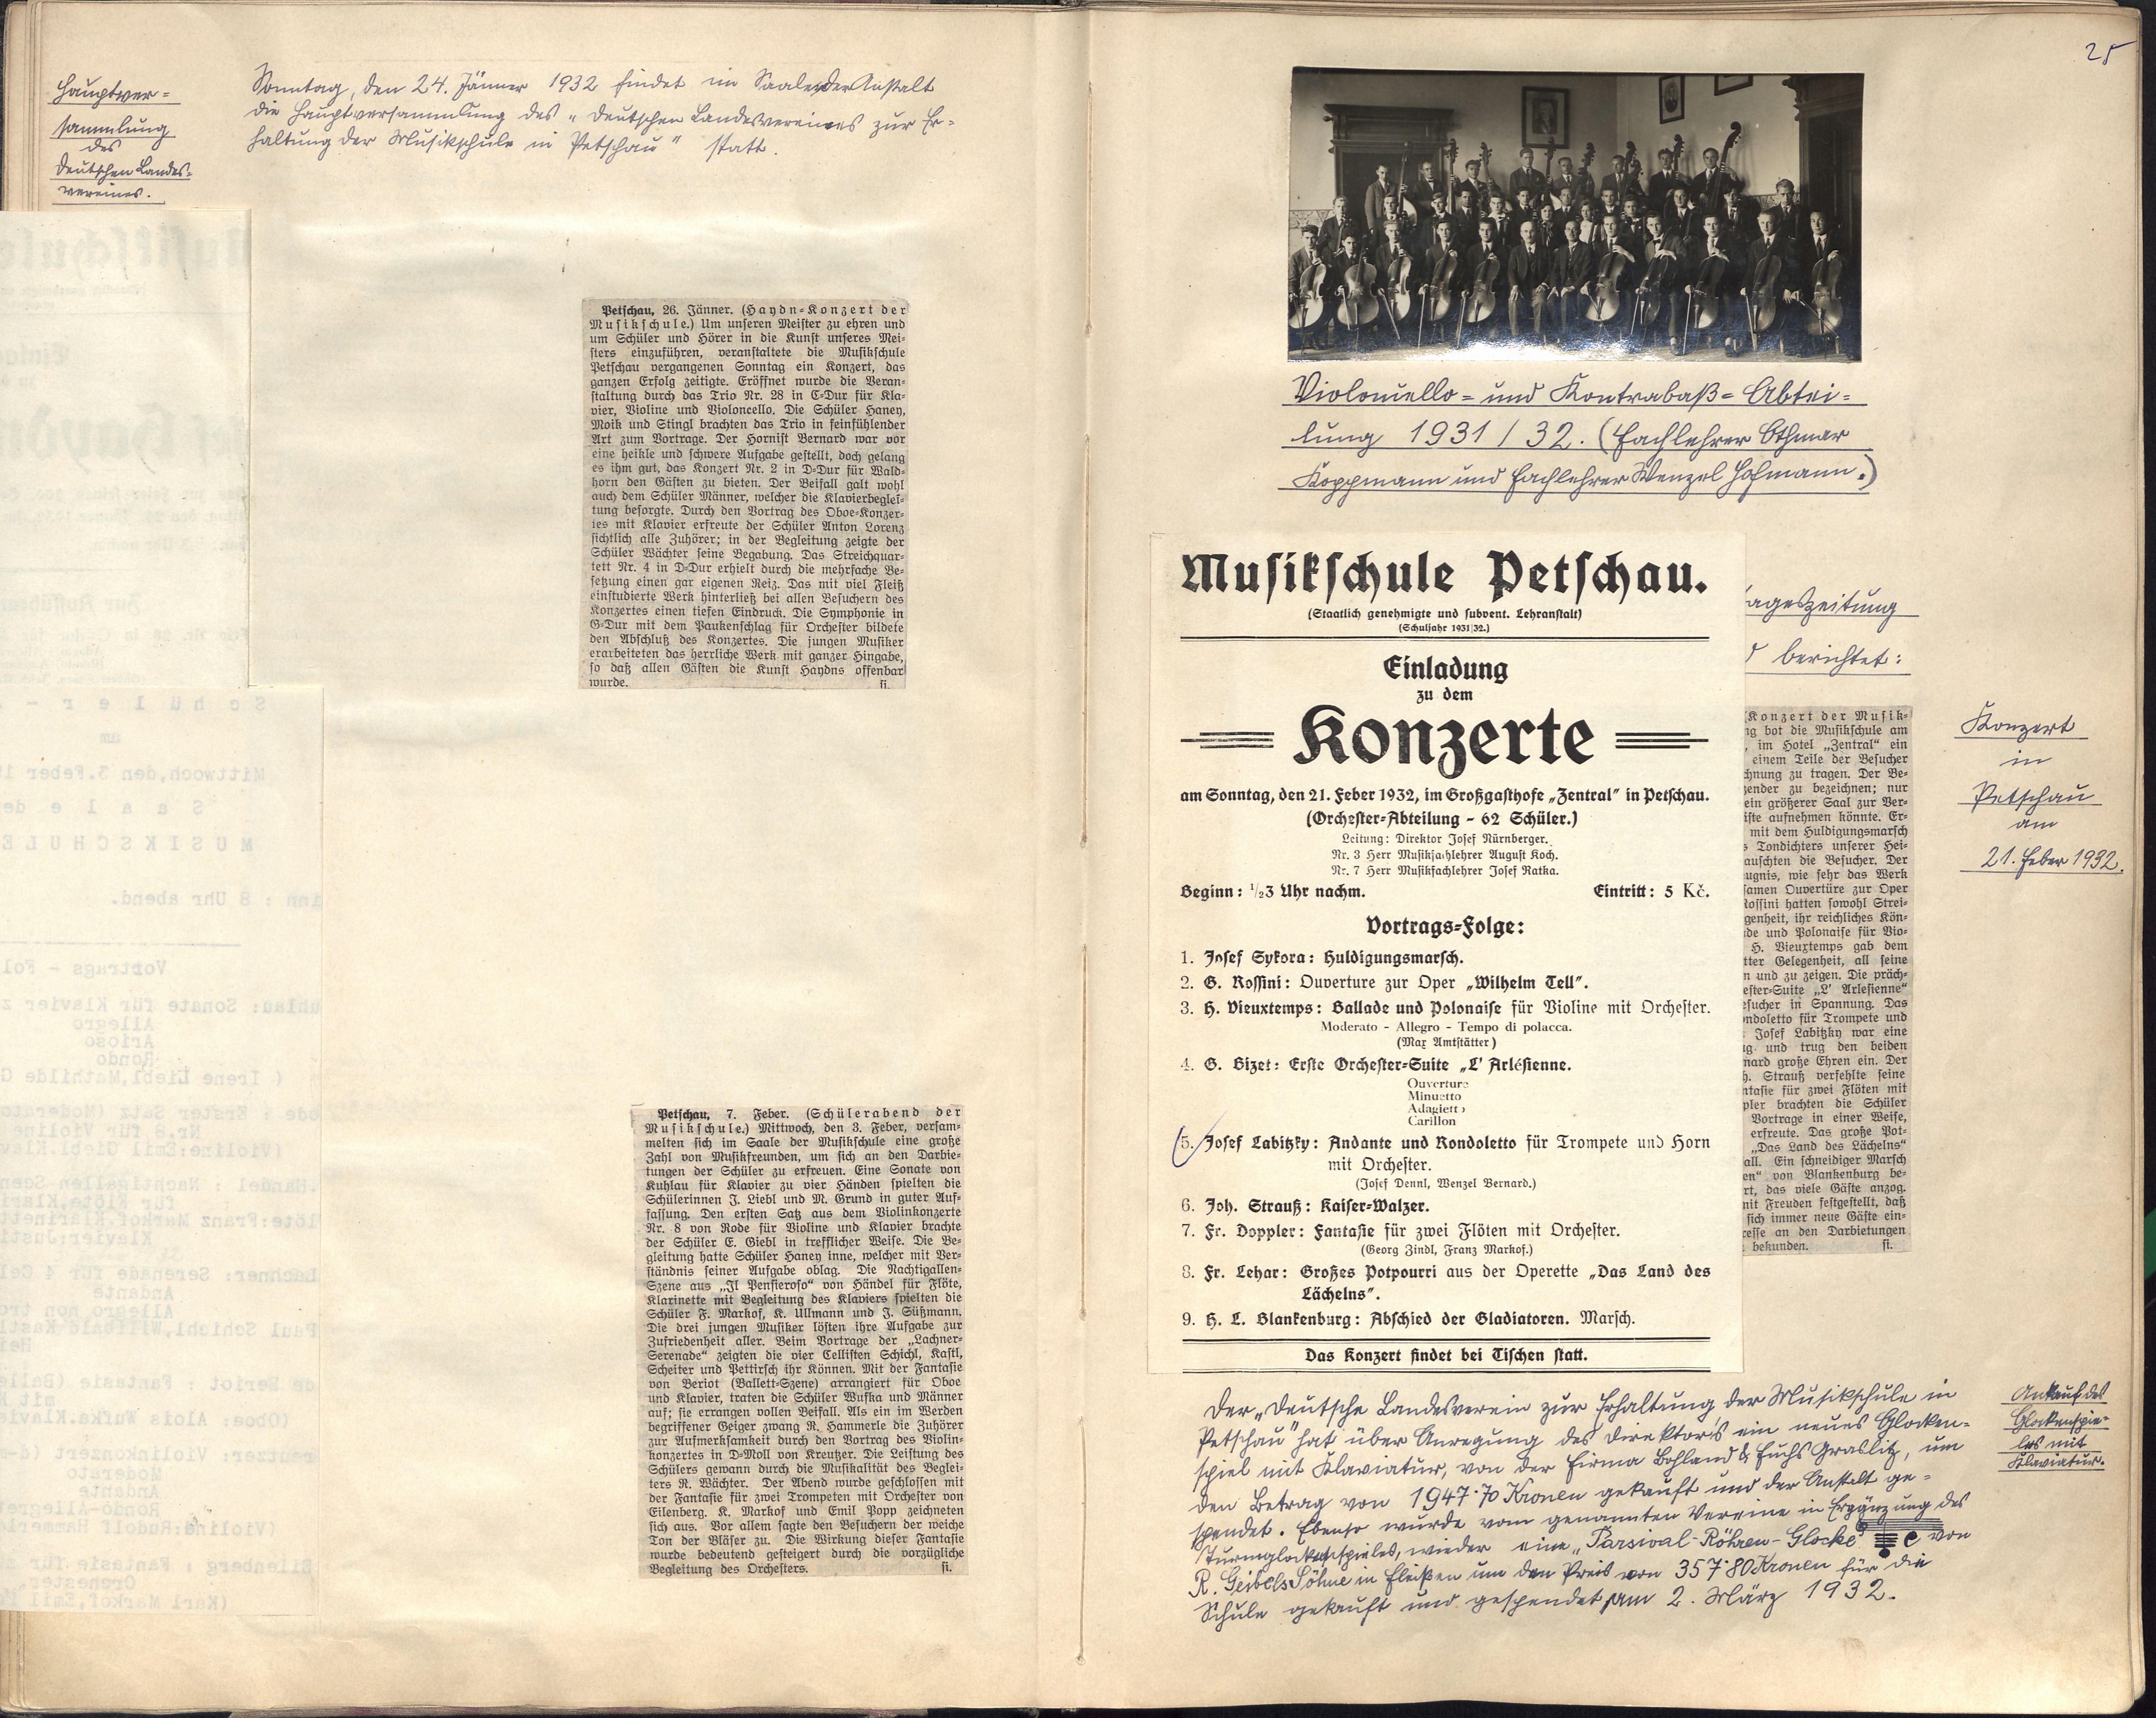 Hauptver=
sammlung
des
Deutschen Landes=
vereines.
Sonntag, den 24. Jänner 1932 findet im Saale der Anstalt
die Hauptversammlung des „Deutschen Landesvereines zur Er=
haltung der Musikschule in Petschau" statt.
Petschau, 26. Jänner. (Haydn-Konzert der
Musikschule.) Um unseren Meister zu ehren und
um Schüler und Hörer in die Kunst unseres Mei-
sters einzuführen, veranstaltete die Musikschule
Petschau vergangenen Sonntag ein Konzert, das
ganzen Erfolg zeitigte. Eröffnet wurde die Veran-
staltung durch das Trio Nr. 28 in C-Dur für Kla-
vier, Violine und Violoncello. Die Schüler Haney,
Moik und Stingl brachten das Trio in feinfühlender
Art zum Vortrage. Der Hornist Bernard war vor
eine heikle und schwere Aufgabe gestellt, doch gelang
es ihm gut, das Konzert Nr. 2 in D-Dur für Wald-
horn den Gästen zu bieten. Der Beifall galt wohl
auch dem Schüler Männer, welcher die Klavierbeglei-
tung besorgte. Durch den Vortrag des Oboe-Konzer-
tes mit Klavier erfreute der Schüler Anton Lorenz
sichtlich alle Zuhörer; in der Begleitung zeigte der
Schüler Wächter seine Begabung. Das Streichquar-
tett Nr. 4 in D-Dur erhielt durch die mehrfache Be-
setzung einen gar eigenen Reiz. Das mit viel Fleiß
einstudierte Werk hinterließ bei allen Besuchern des
Konzertes einen tiefen Eindruck. Die Symphonie in
G-Dur mit dem Paukenschlag für Orchester bildete
den Abschluß des Konzertes. Die jungen Musiker
erarbeiteten das herrliche Werk mit ganzer Hingabe,
so daß allen Gästen die Kunst Haydns offenbar
wurde. si.
Petschau, 7. Feber. (Schülerabend der
Musikschule.) Mittwoch, den 3. Feber, versam-
melten sich im Saale der Musikschule eine große
Zahl von Musikfreunden, um sich an den Darbie-
tungen der Schüler zu erfreuen. Eine Sonate von
Kuhlau für Klavier zu vier Händen spielten die
Schülerinnen J. Liebl und M. Grund in guter Auf-
fassung. Den ersten Satz aus dem Violinkonzerte
Nr. 8 von Rode für Violine und Klavier brachte
der Schüler E. Giebl in trefflicher Weise. Die Be-
gleitung hatte Schüler Haney inne, welcher mit Ver-
ständnis seiner Aufgabe oblag. Die Nachtigallen-
Szene aus „Il Pensieroso" von Händel für Flöte,
Klarinette mit Begleitung des Klaviers spielten die
Schüler F. Markof, K. Ullmann und J. Süßmann.
Die drei jungen Musiker lösten ihre Aufgabe zur
Zufriedenheit aller. Beim Vortrage der „Lachner-
Serenade" zeigten die vier Cellisten Schichl, Kastl,
Scheiter und Pettirsch ihr Können. Mit der Fantasie
von Beriot (Ballett-Szene) arrangiert für Oboe
und Klavier, traten die Schüler Wufka und Männer
auf; sie errangen vollen Beifall. Als ein im Werden
begriffener Geiger zwang R. Hammerle die Zuhörer
zur Aufmerksamkeit durch den Vortrag des Violin-
konzertes in D-Moll von Kreutzer. Die Leistung des
Schülers gewann durch die Musikalität des Beglei-
ters R. Wächter. Der Abend wurde geschlossen mit
der Fantasie für zwei Trompeten mit Orchester von
Eilenberg. K. Markof und Emil Popp zeichneten
sich aus. Vor allem sagte den Besuchern der weiche
Ton der Bläser zu. Die Wirkung dieser Fantasie
wurde bedeutend gesteigert durch die vorzügliche
Begleitung des Orchesters. si.
25
Violoncello= und Kontrabaß=Abtei=
lung 1931/32. (Fachlehrer Othmar
Koppmann und Fachlehrer Wenzel Hofmann.)
Musikschule Petschau.
(Staatlich genehmigte und subvent. Lehranstalt)
(Schuljahr 1931|32.)
Einladung
zu dem
Konzerte
am Sonntag, den 21. Feber 1932, im Großgasthofe „Zentral" in Petschau.
(Orchester-Abteilung - 62 Schüler.)
Leitung: Direktor Josef Nürnberger.
Nr. 3 Herr Musikfachlehrer August Koch.
Nr. 7 Herr Musikfachlehrer Josef Ratka.
Beginn: ½3 Uhr nachm. Eintritt: 5 Kč.
Vortrags-Folge:
1. Josef Sykora: Huldigungsmarsch.
2. G. Rossini: Ouverture zur Oper „Wilhelm Tell".
3. H. Vieuxtemps: Ballade und Polonaise für Violine mit Orchester.
Moderato - Allegro - Tempo di polacca.
(Max Amtstätter)
4. G. Bizet: Erste Orchester-Suite „L' Arlésienne.
Ouverture
Minuetto
Adagietto
Carillon
5. Josef Labitzky: Andante und Rondoletto für Trompete und Horn
mit Orchester.
(Josef Dennl, Wenzel Bernard.)
6. Joh. Strauß: Kaiser-Walzer.
7. Fr. Doppler: Fantasie für zwei Flöten mit Orchester.
(Georg Zindl, Franz Markof.)
8. Fr. Lehar: Großes Potpourri aus der Operette „Das Land des
Lächelns".
9. H. L. Blankenburg: Abschied der Gladiatoren. Marsch.
Das Konzert findet bei Tischen statt.
ageszeitung
berichtet:
Konzert der Musik-
ng bot die Musikschule am
, im Hotel „Zentral" ein
einem Teile der Besucher
chnung zu tragen. Der Be-
zender zu bezeichnen; nur
ein größerer Saal zur Ver-
iste aufnehmen könnte. Er-
mit dem Huldigungsmarsch
s Tondichters unserer Hei-
auschten die Besucher. Der
ugnis, wie sehr das Werk
samen Ouvertüre zur Oper
Rossini hatten sowohl Strei-
genheit, ihr reichliches Kön-
de und Polonaise für Vio-
H. Vieuxtemps gab dem
tter Gelegenheit, all seine
n und zu zeigen. Die präch-
ester-Suite „L' Arlesienne"
esucher in Spannung. Das
ondoletto für Trompete und
Josef Labitzky war eine
ng und trug den beiden
nard große Ehren ein. Der
h. Strauß verfehlte seine
ntasie für zwei Flöten mit
pler brachten die Schüler
Vortrage in einer Weise,
erfreute. Das große Pot-
„Das Land des Lächelns"
all. Ein schneidiger Marsch
en" von Blankenburg be-
rt, das viele Gäste anzog.
mit Freuden festgestellt, daß
sich immer neue Gäste ein-
resse an den Darbietungen
bekunden. si.
Konzert
in
Petschau
am
21. Feber 1932.
Der „Deutsche Landesverein zur Erhaltung der Musikschule in
Petschau" hat über Anregung des Direktors ein neues Glocken-
spiel mit Klaviatur, von der Firma Bohland & Fuchs Graslitz, um
den Betrag von 1947·70 Kronen gekauft und der Anstalt ge-
spendet. Ebenso wurde vom genannten Vereine in Ergänzung des
Turmglockenspieles, wieder eine „Parsival-Röhren-Glocke" e von
R. Geibels Söhne in Fleißen um den Preis von 357·80 Kronen für die
Schule gekauft und gespendet am 2. März 1932.
Ankauf des
Glockenspie-
les mit
Klaviatur.